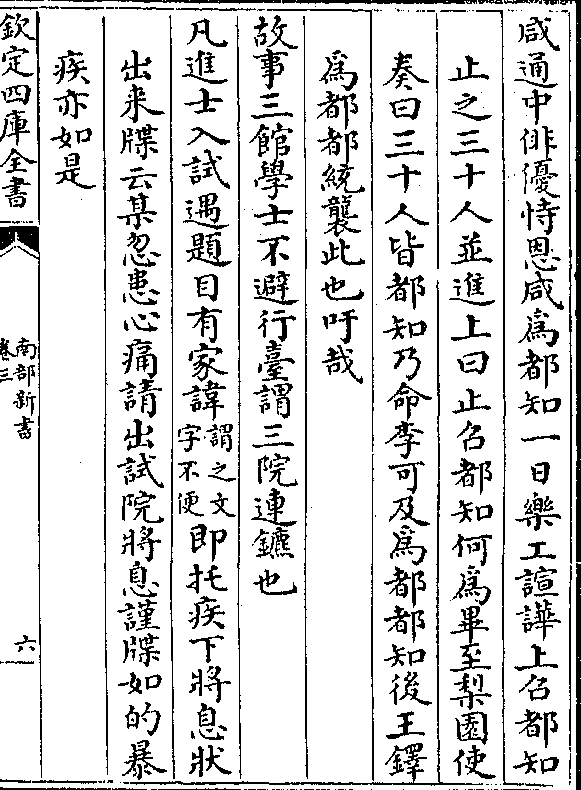 咸通中俳優恃恩咸為都知一日樂工諠譁上召都知
止之三十人並進上曰止召都知何為畢至梨園使
奏曰三十人皆都知乃命李可及為都都知後王鐸
為都都統襲此也吁哉
故事三館學士不避行臺謂三院連鑣也
凡進士入試遇題目有家諱謂之文字不便即托疾下將息狀
出来牒云某忽患心痛請出試院將息謹牒如的暴
疾亦如是
欽定四庫全書
南部新書
卷三
六